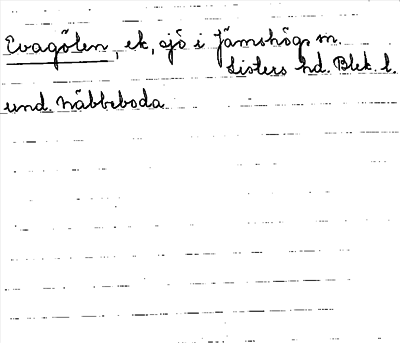 Evagölen, ek, sjö i Jämshögs sn.
Listers hd. Blek. l.
und. Näbbeboda